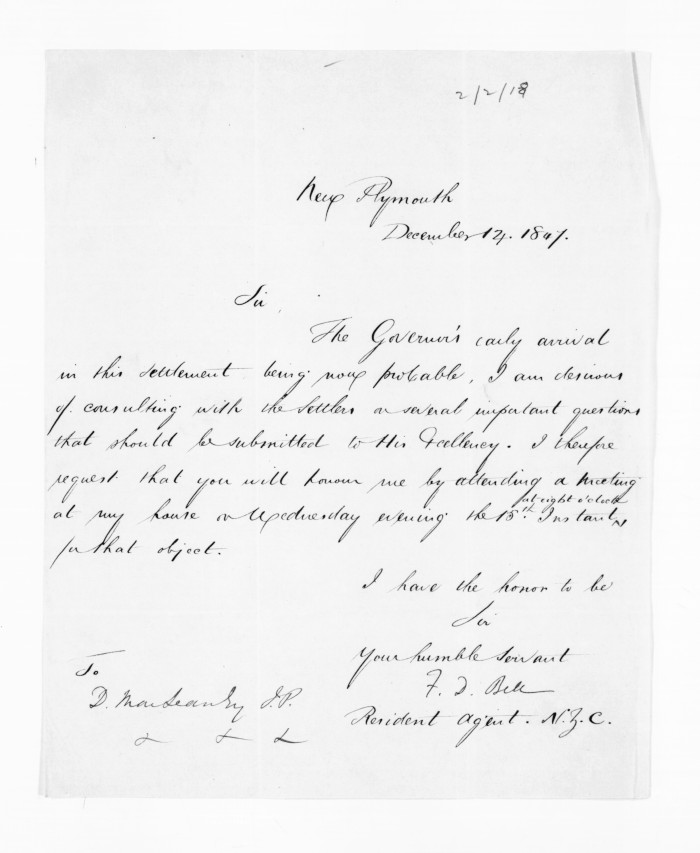 2/2/18
New Plymouth
December 14. 1847.
Sir,
The Governor's early arrival
in this Settlement being now probable, I am desirous
of consulting with the Settlers on several important questions
that should be submitted to His Excellency. I therefore
request that you will honour me by attending a meeting
at eight o'clock
at my house on Wednesday evening the 15th. Instant
for that object.
I have the honor to be
Sir
Your humble Servant
F. D. Bell
Resident Agent. N.Z.C.
To
D. MacLean Esq J.P.